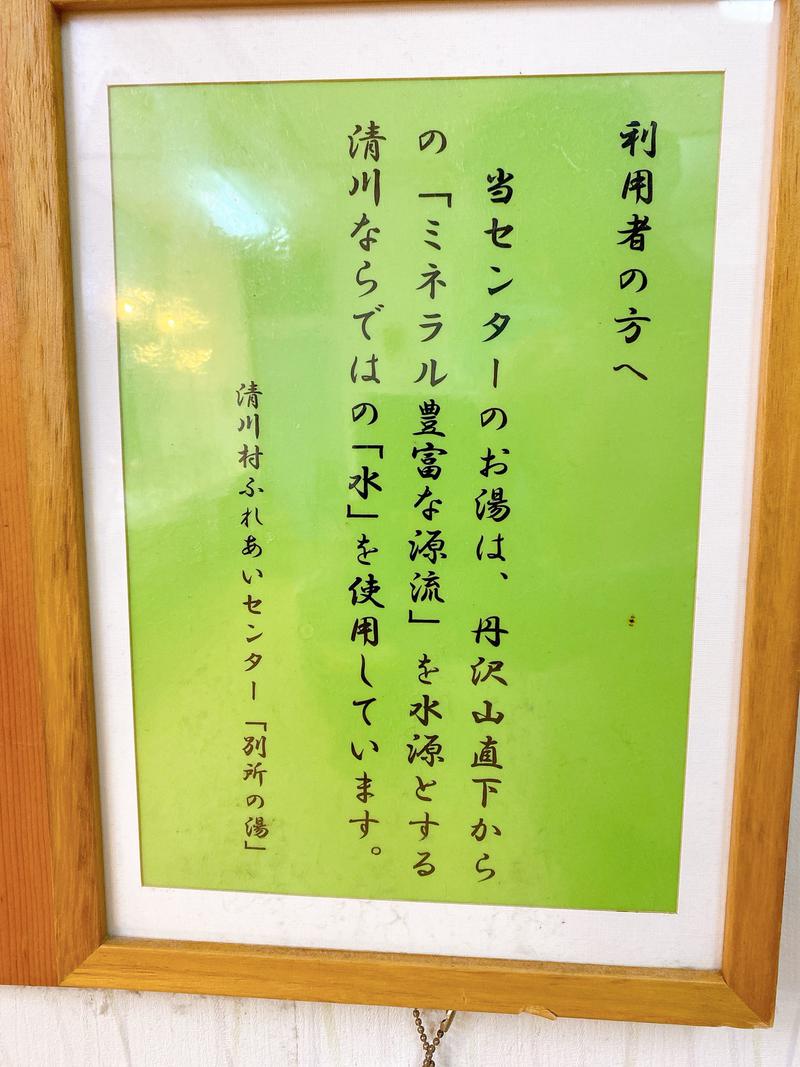 利用者の方へ
当センターのお湯は、丹沢山直下から
の「ミネラル豊富な源流」を水源とする
清川ならではの「水」を使用しています。
清川村ふれあいセンター「別所の湯」